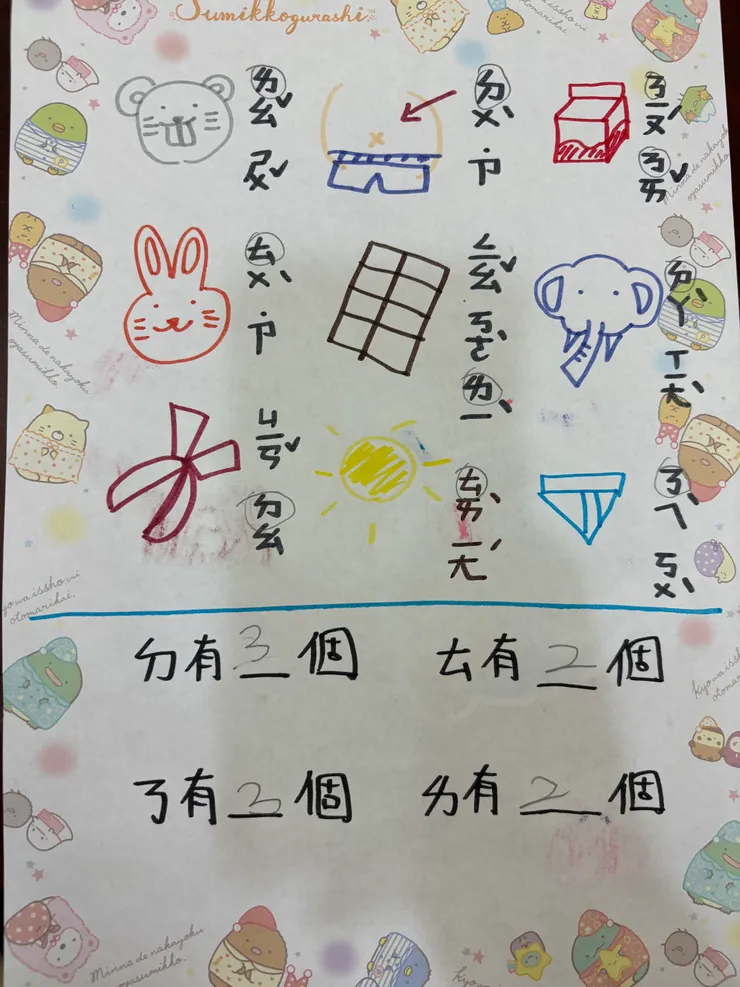 Sumikkogurashi
ㄌㄠˇ ㄕㄨˇ
ㄉㄨˋ ˙ㄗ
ㄋㄧㄡˊ ㄋㄞˇ
ㄊㄨˋ ˙ㄗ
ㄑㄧㄠˇ ㄎㄜˋ ㄌㄧˋ
ㄉㄚˋ ㄒㄧㄤˋ
ㄐㄧㄢˇ ㄉㄠ
ㄊㄞˋ ㄧㄤˊ
ㄋㄟˋ ㄎㄨˋ
ㄉ有 3 個
ㄊ有 2 個
ㄋ有 3 個
ㄌ有 2 個
Minna de nakayoku
oyasumikko.
kyowaissho ni
otomarikai.
Minna de nakayoku
oyasumikko.